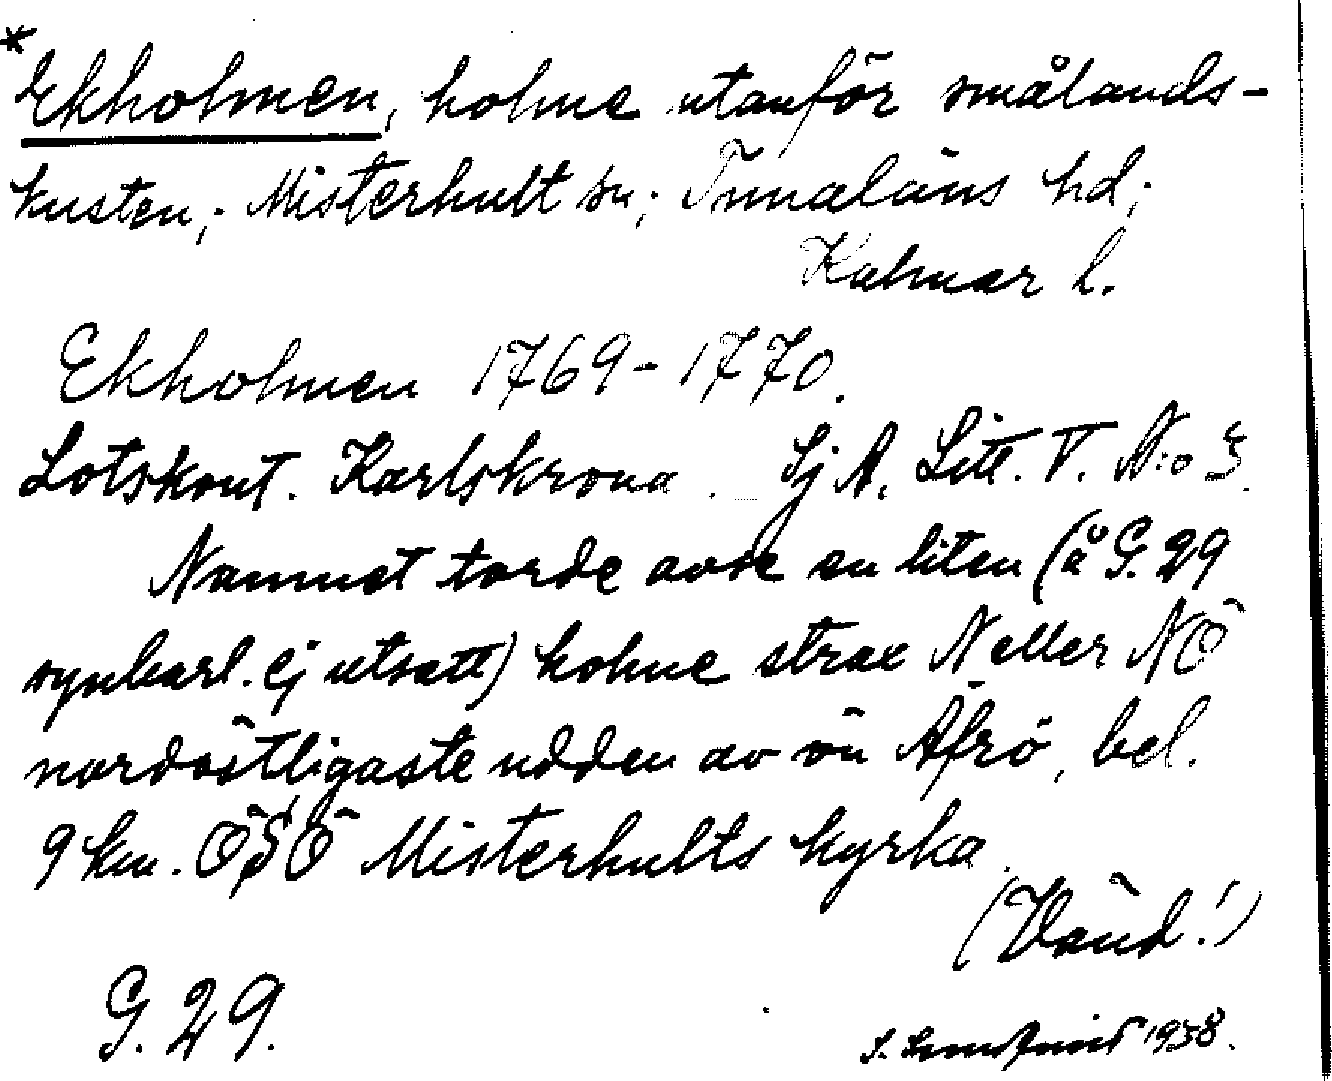 * Ekholmen, holme utanför smålands-
kusten; Misterhult sn; Tunaläns hd;
Kalmar l.
Ekholmen 1769-1770.
Lotskont. Karlskrona. Sj A. Litt. V. N:o 3.
Namnet torde avse en liten (å G. 29
synbarl. ej utsatt) holme strax N eller NÖ
nordöstligaste udden av ön Äfrö, bel.
9 km. ÖSÖ Misterhults kyrka.
(Vänd!)
G. 29.
1938.